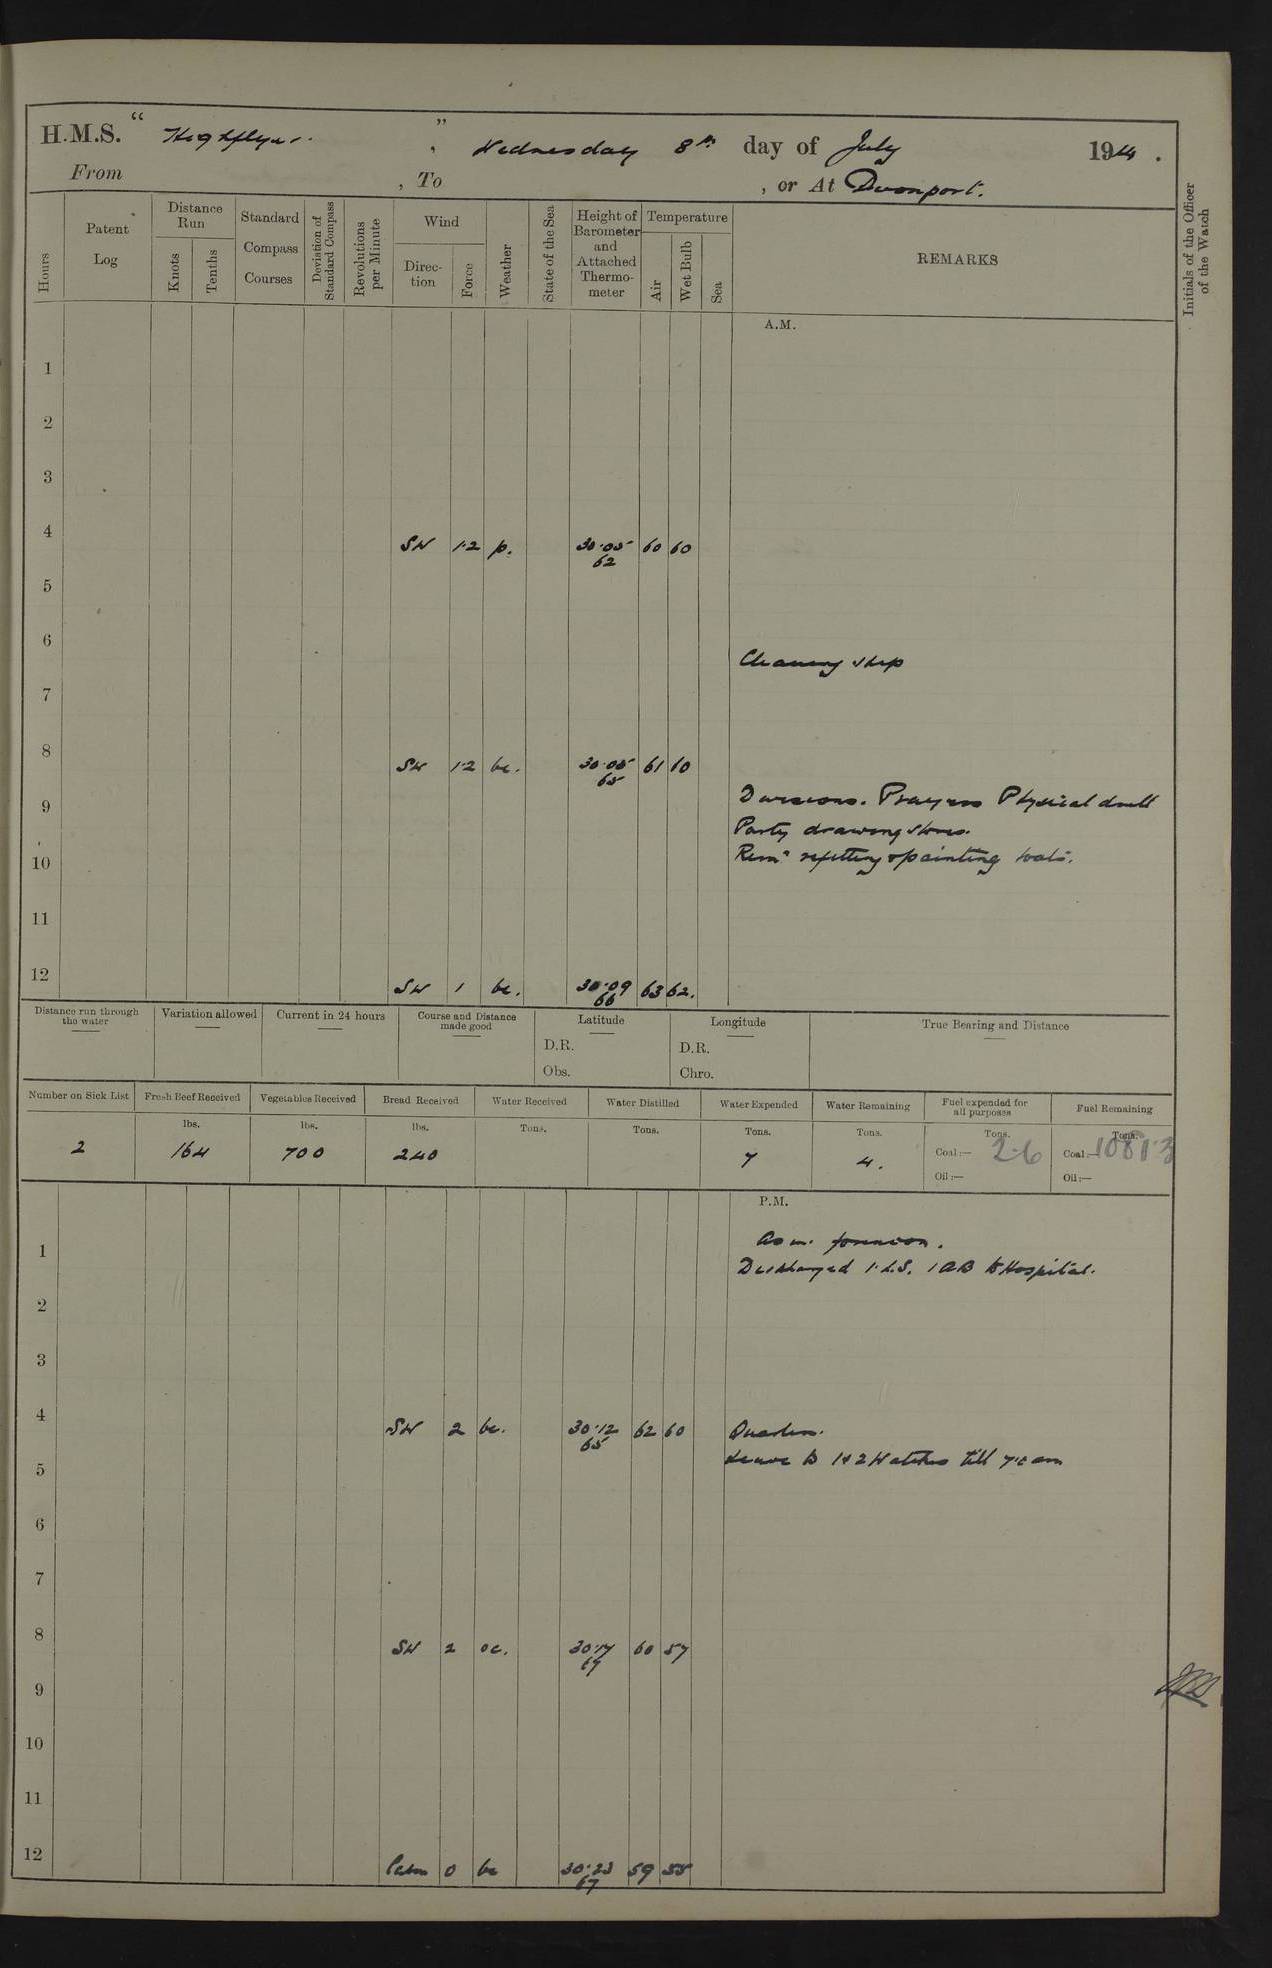 H.M.S. " Highflyer. " , Wednesday 8th day of July 1914 .
From , To , or At Devonport.
Hours
Patent Log
Distance Run
Knots
Tenths
Standard Compass Courses
Deviation of Standard Compass
Revolutions per Minute
Wind
Direc-tion
Force
Weather
State of the Sea
Height of Barometer and Attached Thermo-meter
Temperature
Air
Wet Bulb
Sea
REMARKS
Initials of the Officer of the Watch
A.M.
1
2
3
4 SW 1·2 p. 30·05 60 60
62
5
6
Cleaning ship
7
8 SW 1·2 bc. 30·05 61 60
65
9 Divisions. Prayers Physical drill
Party drawing stores.
10 Remr refitting & painting boats.
11
12 SW 1 bc. 30·09 63 62.
66
Distance run through the water
Variation allowed
Current in 24 hours
Course and Distance made good
Latitude
D.R.
Obs.
Longitude
D.R.
Chro.
True Bearing and Distance
Number on Sick List
Fresh Beef Received
Vegetables Received
Bread Received
Water Received
Water Distilled
Water Expended
Water Remaining
Fuel expended for all purposes
Fuel Remaining
lbs. lbs. lbs. Tons. Tons. Tons. Tons. Tons. Tons.
2 164 700 240 7 4. Coal:— 2·6 Coal:— 1081·3
Oil:— Oil:—
P.M.
As in forenoon.
1 Discharged 1 L.S. 1 AB to Hospital.
2
3
4 SW 2 bc. 30·12 62 60 Quarters.
65
5 Leave to 1 & 2 Watches till 7·0 am
6
7
8 SW 2 oc. 30·17 60 57
67
9
10
11
12 Calm 0 bc 30·23 59 55
67